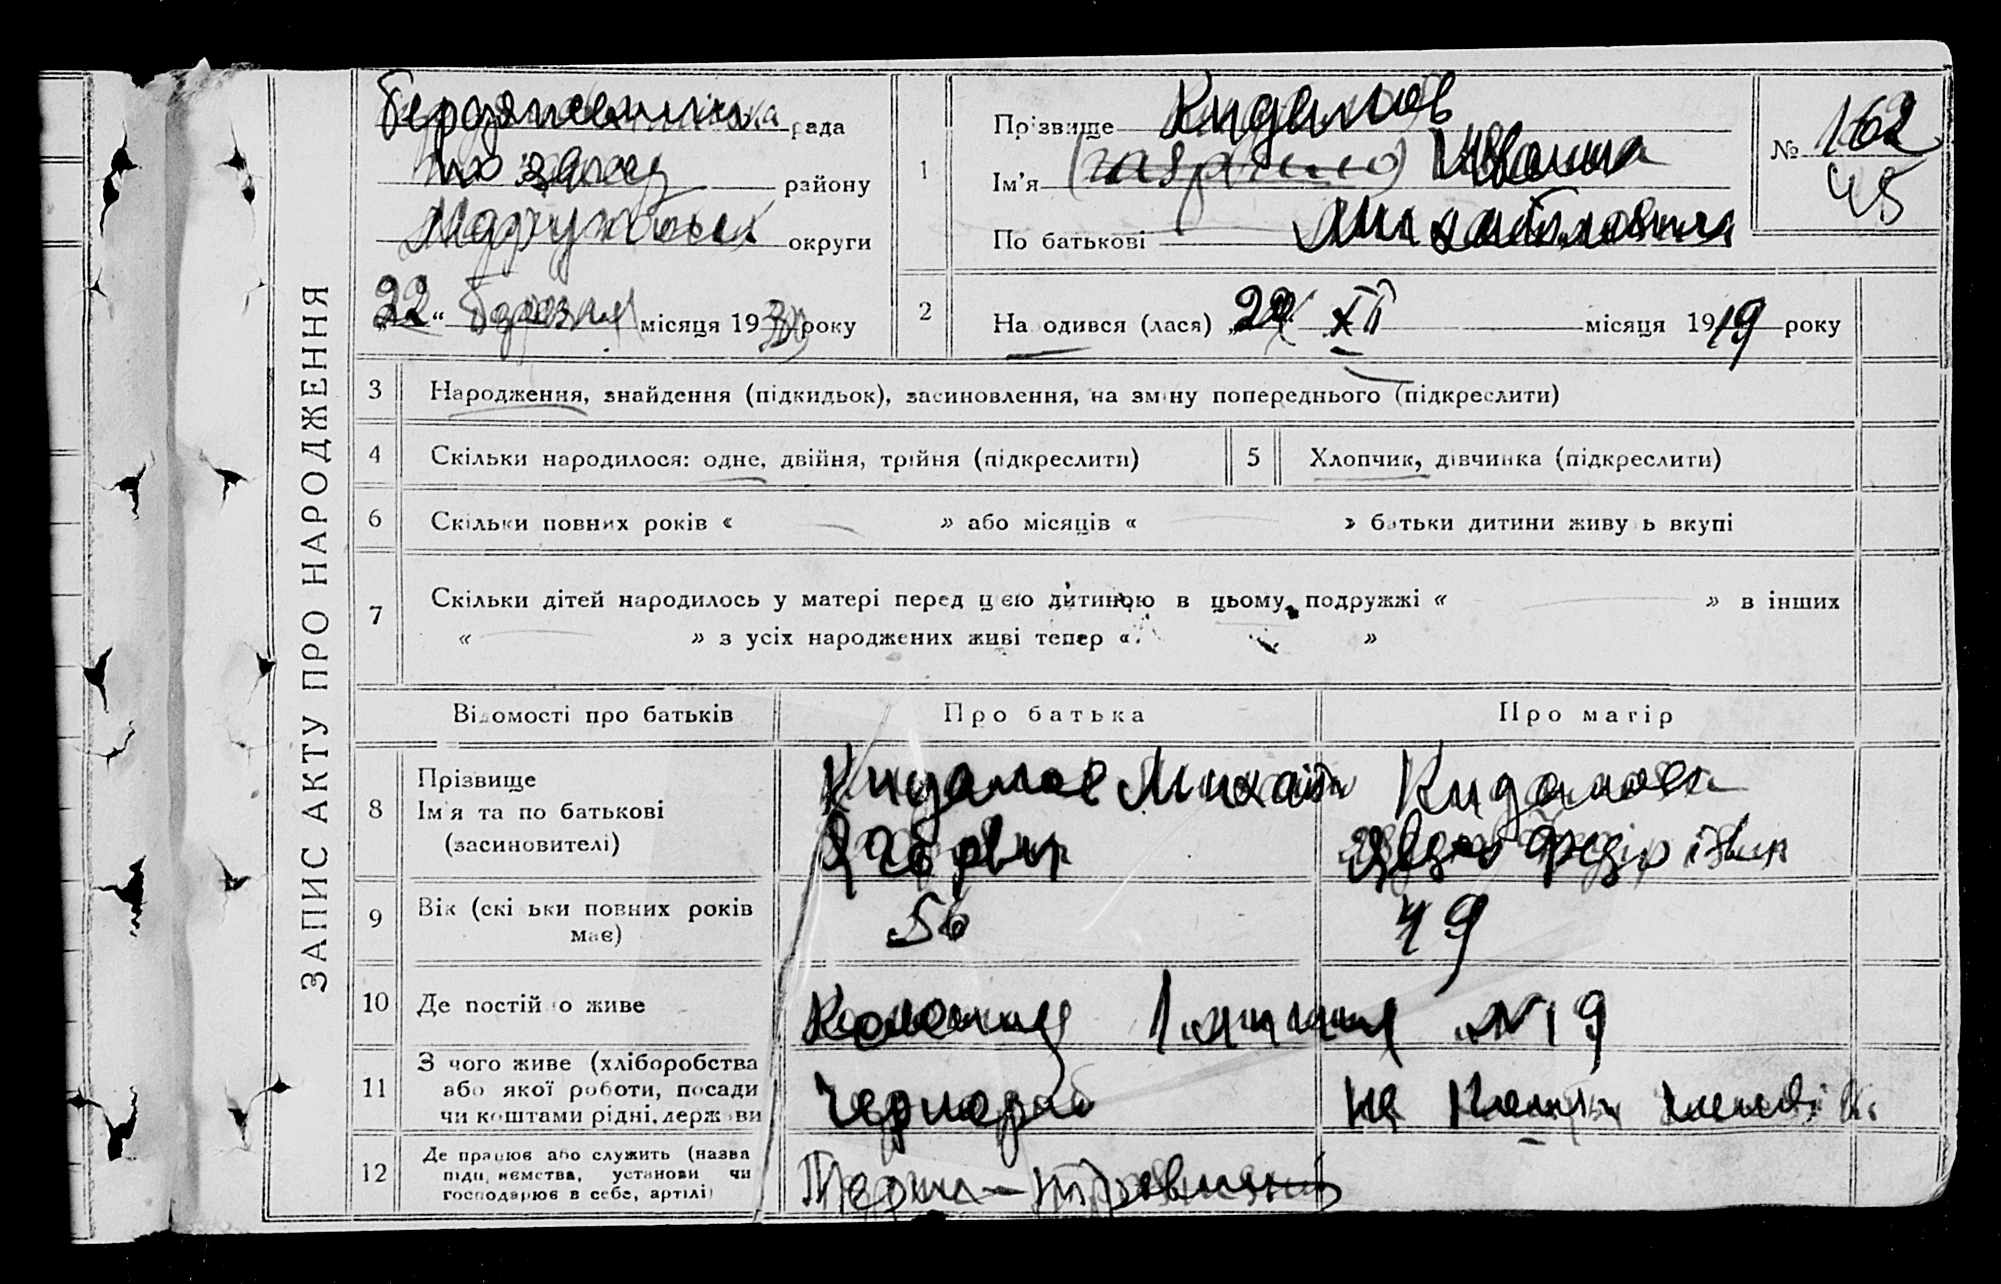 ЗАПИС АКТУ ПРО НАРОДЖЕННЯ
рада
району
округи
22 " Березня місяця 19 року
1
Прізвище Кидалов
Ім'я Ивана
По батькові Михайловича
№ 162
45
2
Народився (лася) XII місяця 1919 року
3 Народження, знайдення (підкидьок), засиновлення, на зміну попереднього (підкреслити)
4 Скільки народилося: одне, двійня, трійня (підкреслити)
5 Хлопчик, дівчинка (підкреслити)
6 Скільки повних років « » або місяців « » батьки дитини живуть вкупі
7 Скільки дітей народилось у матері перед цією дитиною в цьому подружжі « » в інших
« » з усіх народжених живі тепер « »
Відомості про батьків Про батька Про матір
8 Прізвище
Ім'я та по батькові
(засиновителі)
Кидалов Михайло
Кидалова
9 Вік (скільки повних років має) 56 49
10 Де постійно живе Колония 1 линия №19
11 З чого живе (хліборобства
або якої роботи, посади
чи коштами рідні, держави
Чернороб
на
12 Де працює або служить (назва
підприємства, установи чи
господарює в себе, артілі)